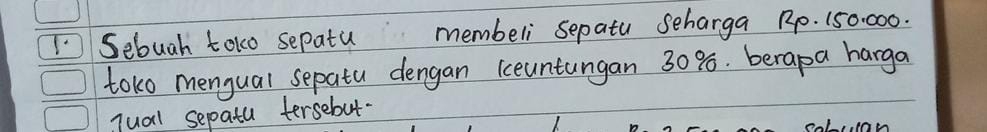 1. Sebuah toko sepatu membeli sepatu seharga Rp. 150.000.
toko mengual sepatu dengan keuntungan 30%. berapa harga
Jual sepatu tersebut.